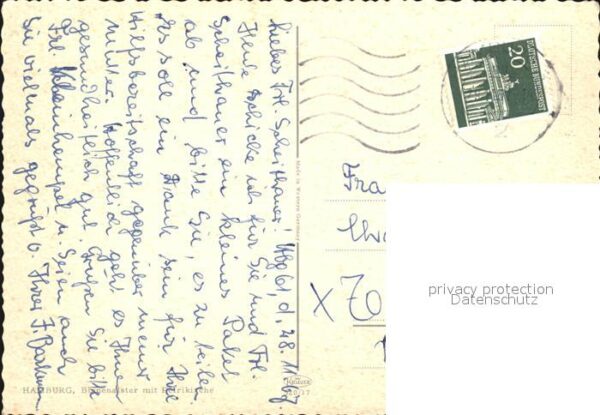 Liebes Frl. Scheithauer! Hbg 61, d. 28. 11.
Heute schicke ich für Sie und Frl.
Scheithauer ein kleines Paket
ab und bitte Sie, es zu teilen.
Es soll ein Dank sein für Ihre
Hilfsbereitschaft gegenüber meiner
Mutter. Hoffentlich geht es Ihnen
gesundheitlich gut. Grüßen Sie bitte
Frl. u. Seien auch
Sie vielmals gegrüßt v. Ihrer
Made in Western Germany
20
DEUTSCHE BUNDESPOST
Fra
X 70
privacy protection
Datenschutz
HAMBURG, Binnenalster mit Petrikirche
Krüger